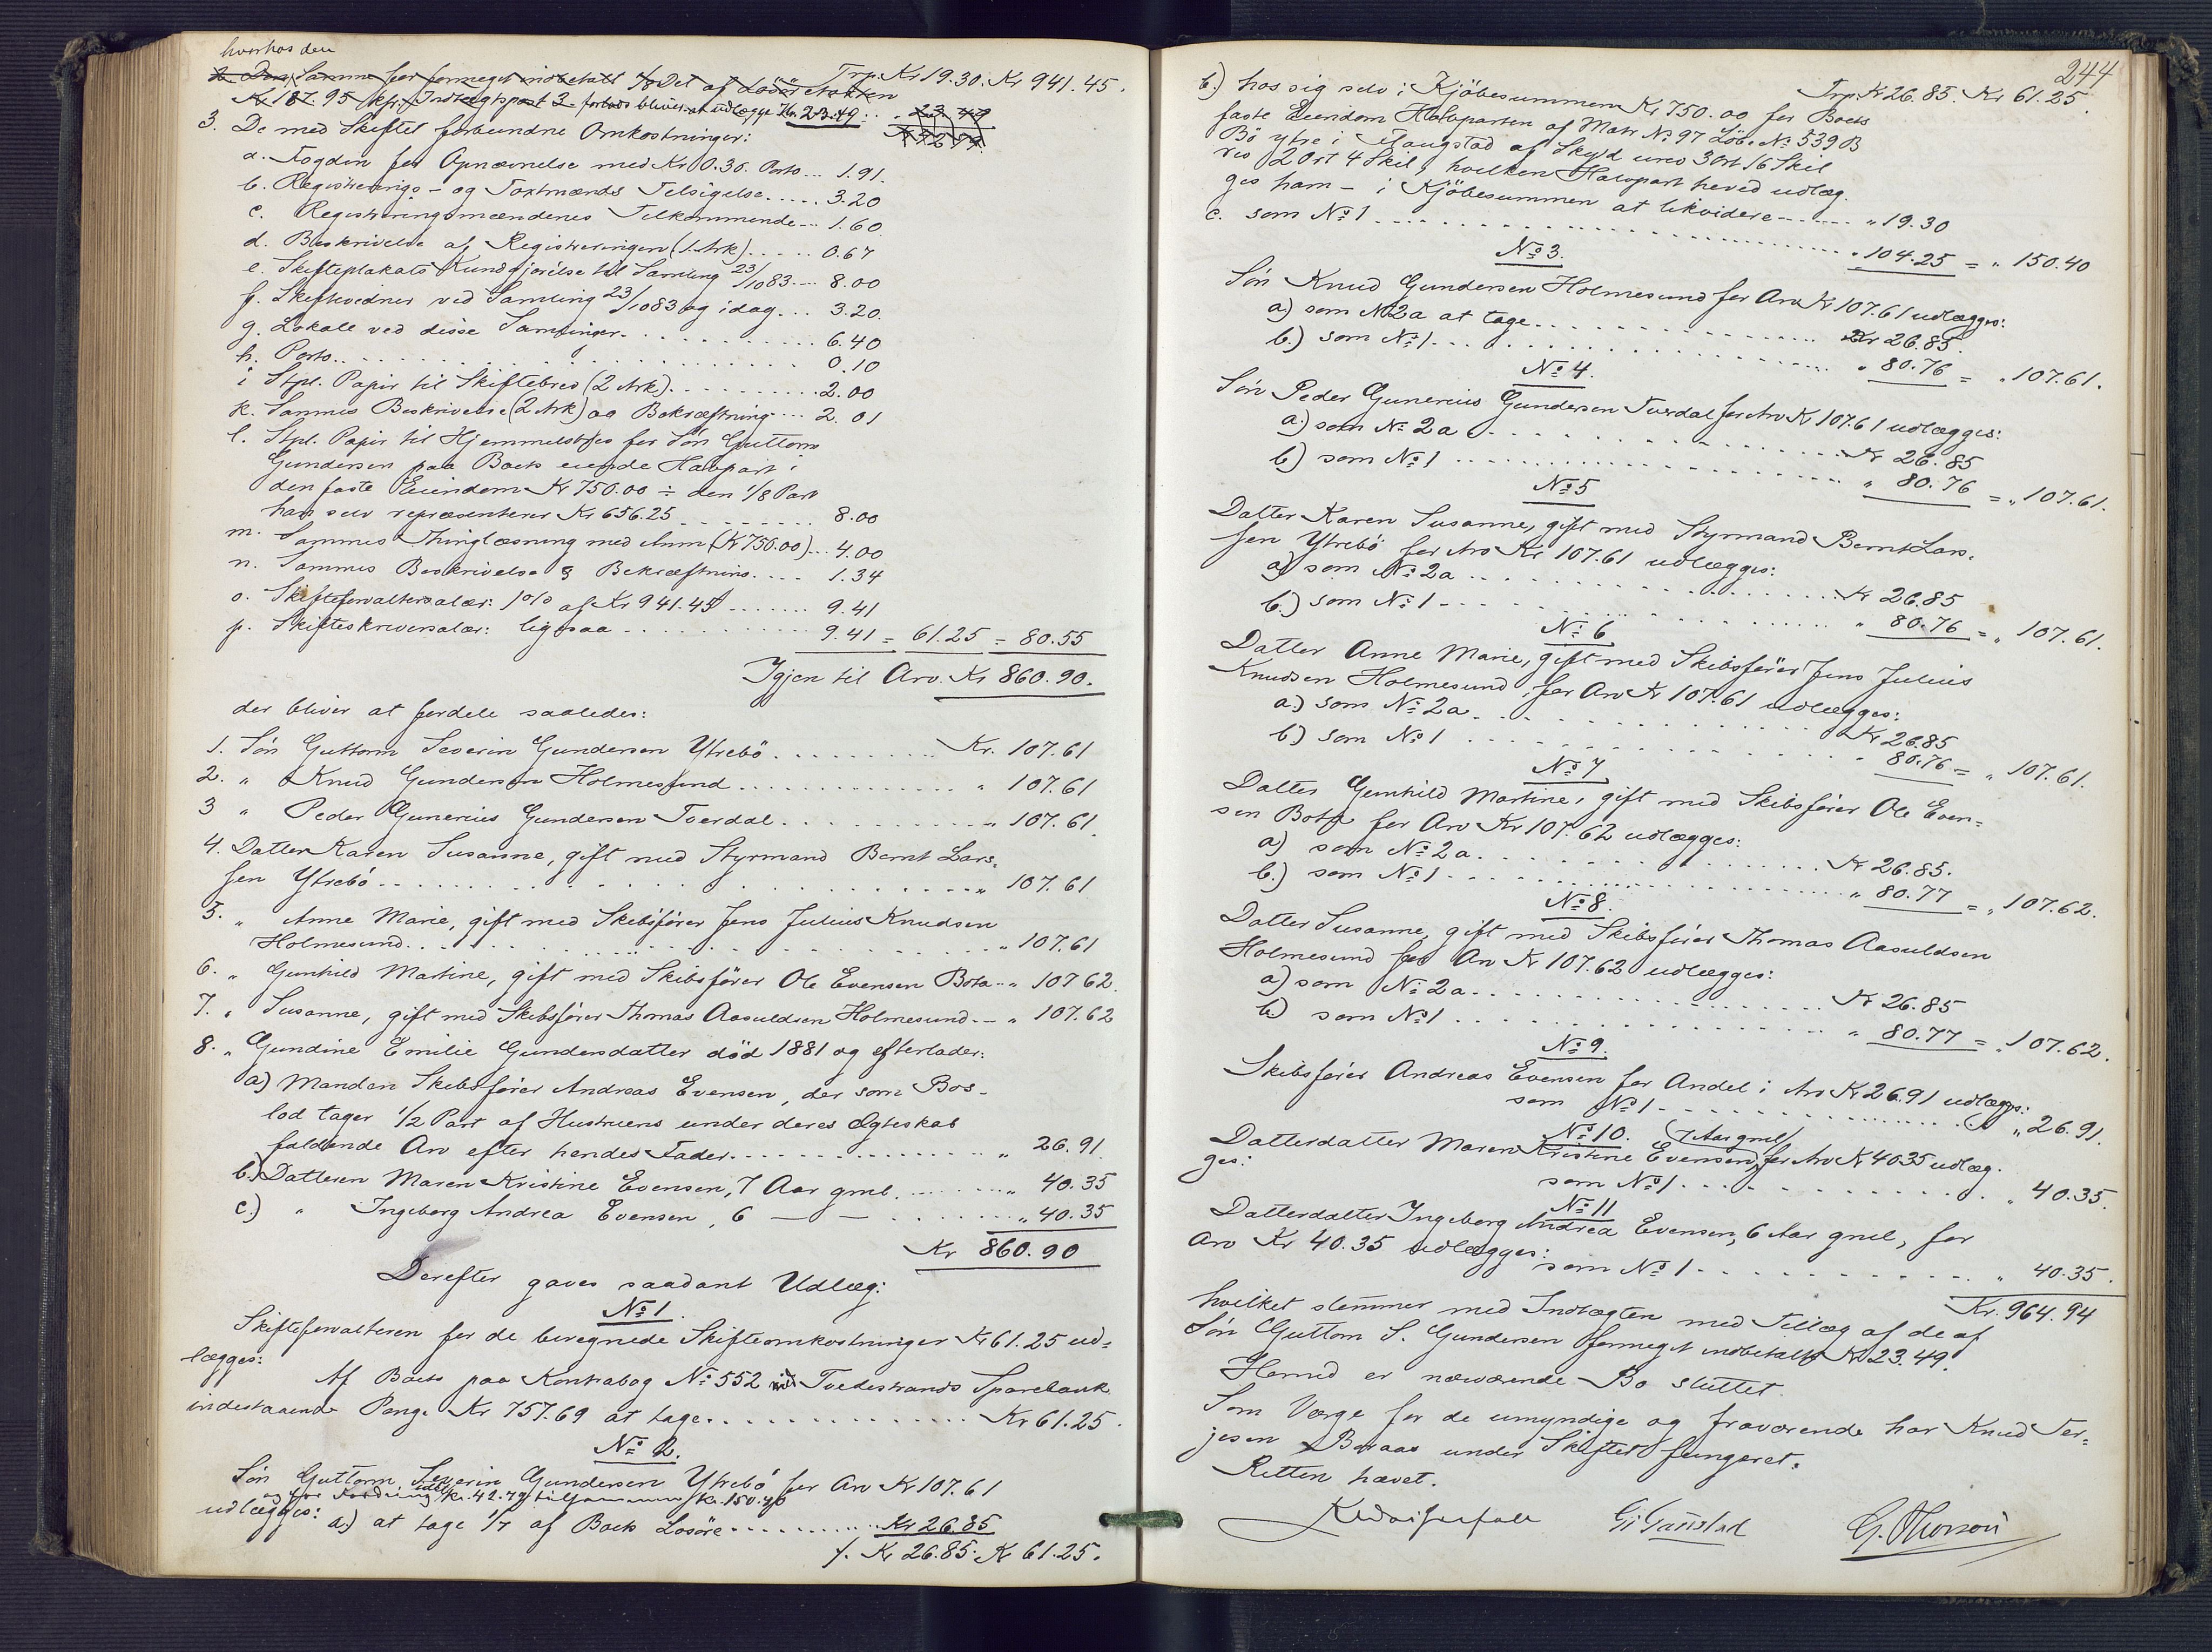 hvorhos den
Trp. Kr 19.30. Kr 941.45.
2. Den Samme for formeget indbetalt 1/8 Det af Lösöretakten
Kr 187.95 kfr. Indtægtspost 3 forlods bliver at udlægge Kr. 23.49 . . 23.49
3. De med Skiftet forbundne Omkostninger:
a. Fogden for Opnævnelse med Kr 0.30. Porto ... 1.91.
b. Registrerings- og Taxtmænds Tilsigelse..... 3.20
c. Registreringsmændenes Tilkommende... 1.60.
d. Beskrivelse af Registreringen (1 Ark)..... 0.67
e. Skifteplakats Kundgjörelse til Samling 23/10 83.... 8.00
f. Skiftevidner ved Samling 23/10 83 og idag... 3.20.
g. Lokale ved disse Samlinger........... 6.40
h. Porto.................. 0.10
i Stpl. Papir til Skiftebrev (2 Ark).......... 2.00
k. Sammes Beskrivelse (2 Ark) og Bekræftning.... 2.01
l. Stpl. Papir til Hjemmelsbrev for Sön Guttorm
Gundersen paa Boets eiende Halvpart i
den faste Eiendom Kr 750.00 ÷ den 1/8 Part
han selv repræsenterer Kr 656.25........ 8.00
m. Sammes Thinglæsning med Anm (Kr 750.00)... 4.00
n. Sammes Beskrivelse & Bekræftning..... 1.34
o. Skifteforvaltersalær: 1% af Kr 941.45 ....... 9.41
p. Skifteskriversalær: ligesaa ........... 9.41 = 61.25 = 80.55
Igjen til Arv. Kr 860.90.
der bliver at fordele saaledes:
1. Sön Guttorm Severin Gundersen Ytrebö........... Kr. 107.61
2. " Knud Gundersen Holmesund............... " 107.61
3 " Peder Gunerius Gundersen Tverdal............ " 107.61.
4. Datter Karen Susanne, gift med Styrmand Bernt Lars-
sen Ytrebö........................ " 107.61
5. " Anne Marie, gift med Skibsförer Jens Julius Knudsen
Holmesund....................... " 107.61
6. " Gunhild Martine, gift med Skibsförer Ole Evensen Bota.. " 107 62.
7. " Susanne, gift med Skibsförer Thomas Aasuldsen Holmesund... " 107.62
8. " Gundine Emilie Gundersdatter död 1881 og efterlader:
a) Manden Skibsförer Andreas Evensen, der som Bos-
lod tager 1/2 Part af Hustruens under deres Ægteskab
faldende Arv efter hendes Fader................ " 26.91.
b.) Datteren Maren Kristine Evensen, 7 Aar gml. ....... " 40.35
c.) " Ingeborg Andrea Evensen, 6 — — ....... " 40.35
Kr 860.90
Derefter gaves saadant Udlæg:
No 1.
Skifteforvalteren for de beregnede Skifteomkostninger Kr 61.25 ud-
lægges:
Af Boets paa Kontrabog No 552 ved Tvedestrands Sparebank
indestaaende Penge Kr 757.69 at tage............... Kr 61.25.
No 2.
Sön Guttorm Severin Gundersen Ytrebö for Arv Kr 107.61
og for Fordring Kr. 42.79 tilsammen Kr. 150.40
udlægges: a.) at tage 1/7 af Boets Lösöre........... Kr 26.85
/. Kr 26.85. Kr 61.25.
244
Trp. Kr 26.85. Kr 61.25.
b.) hos sig selv i Kjöbesummen Kr 750.00 for Boets
faste Eiendom Halvparten af Matr No 97 Löb. No 539 B
Bö ytre i Flangstad af Skyld urev 3 Ort 16 Skil
rev 2 Ort 4 Skil, hvilken Halvpart herved udlæg-
ges ham — i Kjöbesummen at likvidere...... " 19.30
c. som No 1 .................. " 104.25 = " 150.40
No 3.
Sön Knud Gundersen Holmesund for Arv Kr 107.61 udlægges:
a) som No 2a at tage................ Kr 26.85.
b.) som No 1................... " 80.76 = " 107.61.
No 4.
Sön Peder Gunerius Gundersen Tverdal for Arv Kr 107.61 udlægges:
a.) som No 2a ................ Kr 26.85
b.) som No 1 ................ " 80.76 = " 107.61.
No 5
Datter Karen Susanne, gift med Styrmand Bernt Lars-
sen Ytrebö for Arv Kr 107.61 udlægges:
a) som No 2a ................ Kr 26.85
b.) som No 1 ................ " 80.76 = " 107.61.
No 6
Datter Anne Marie, gift med Skibsförer Jens Julius
Knudsen Holmesund, for Arv Kr 107.61 udlægges:
a.) som No 2a................ Kr 26.85
b.) som No 1 ................ " 80.76 = " 107.61.
No 7
Datter Gunhild Martine, gift med Skibsförer Ole Even-
sen Bota for Arv Kr 107.62 udlægges:
a) som No 2a................ Kr 26.85.
b.) som No 1................ " 80.77 = " 107.62.
No 8.
Datter Susanne, gift med Skibsförer Thomas Aasuldsen
Holmesund for Arv Kr 107.62 udlægges:
a) som No 2a................ Kr 26.85
b) som No 1................ " 80.77 = " 107.62.
No 9.
Skibsförer Andreas Evensen for Andel i Arv Kr 26.91 udlægges:
som No 1................ " 26.91.
No 10. (7 Aar gml)
Datterdatter Maren Kristine Evensen, for Arv Kr 40.35 udlæg-
ges:
som No 1................ " 40.35.
No 11
Datterdatter Ingeborg Andrea Evensen, 6 Aar gml, for
Arv Kr 40.35 udlægges:
som No 1................ " 40.35.
Kr. 964.94
hvilket stemmer med Indtægten med Tillæg af de af
Sön Guttorm S. Gundersen formeget indbetalte Kr 23.49.
Hermed er nærværende Bo sluttet.
Som Værge for de umyndige og fraværende har Knud Ter-
jesen Beraas under Skiftet fungeret.
Retten hævet.